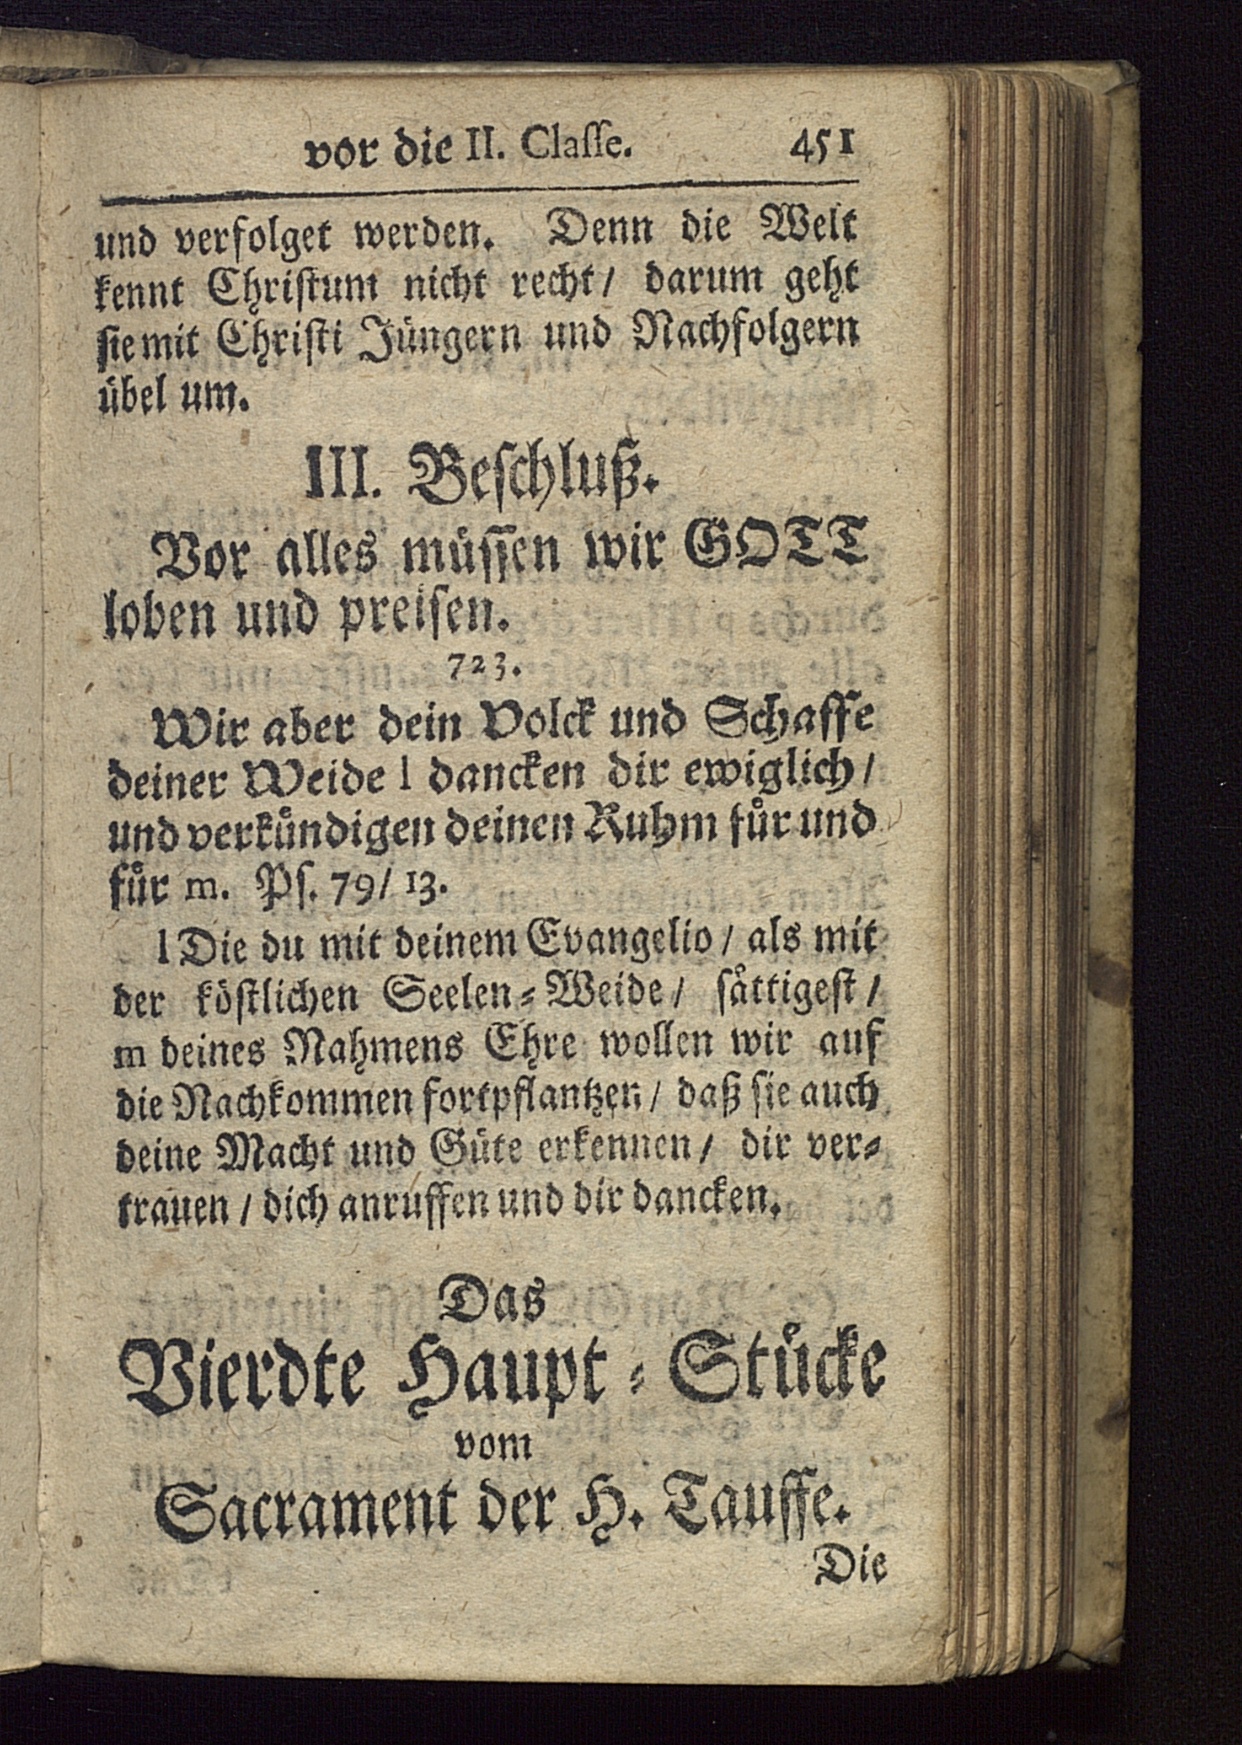 vor die II. Claſſe. 451
und verfolget werden. Denn die Welt
kennt Chriſtum nicht recht/ darum geht
ſie mit Chriſti Jüngern und Nachfolgern
übel um.
III. Beſchluß.
Vor alles müſſen wir GOTT
loben und preiſen.
723.
Wir aber dein Volck und Schaffe
deiner Weide l dancken dir ewiglich/
und verkuͤndigen deinen Ruhm fuͤr und
fuͤr m. Pſ. 79/ 13.
l Die du mit deinem Evangelio/ als mit
der köſtlichen Seelen-Weide/ ſaͤttigeſt/
m deines Nahmens Ehre wollen wir auf
die Nachkommen fortpflantzen/ daß ſie auch
deine Macht und Güte erkennen/ dir ver-
trauen/ dich anruffen und dir dancken.
Das
Vierdte Haupt-Stuͤcke
vom
Sacrament der H. Tauffe.
Die